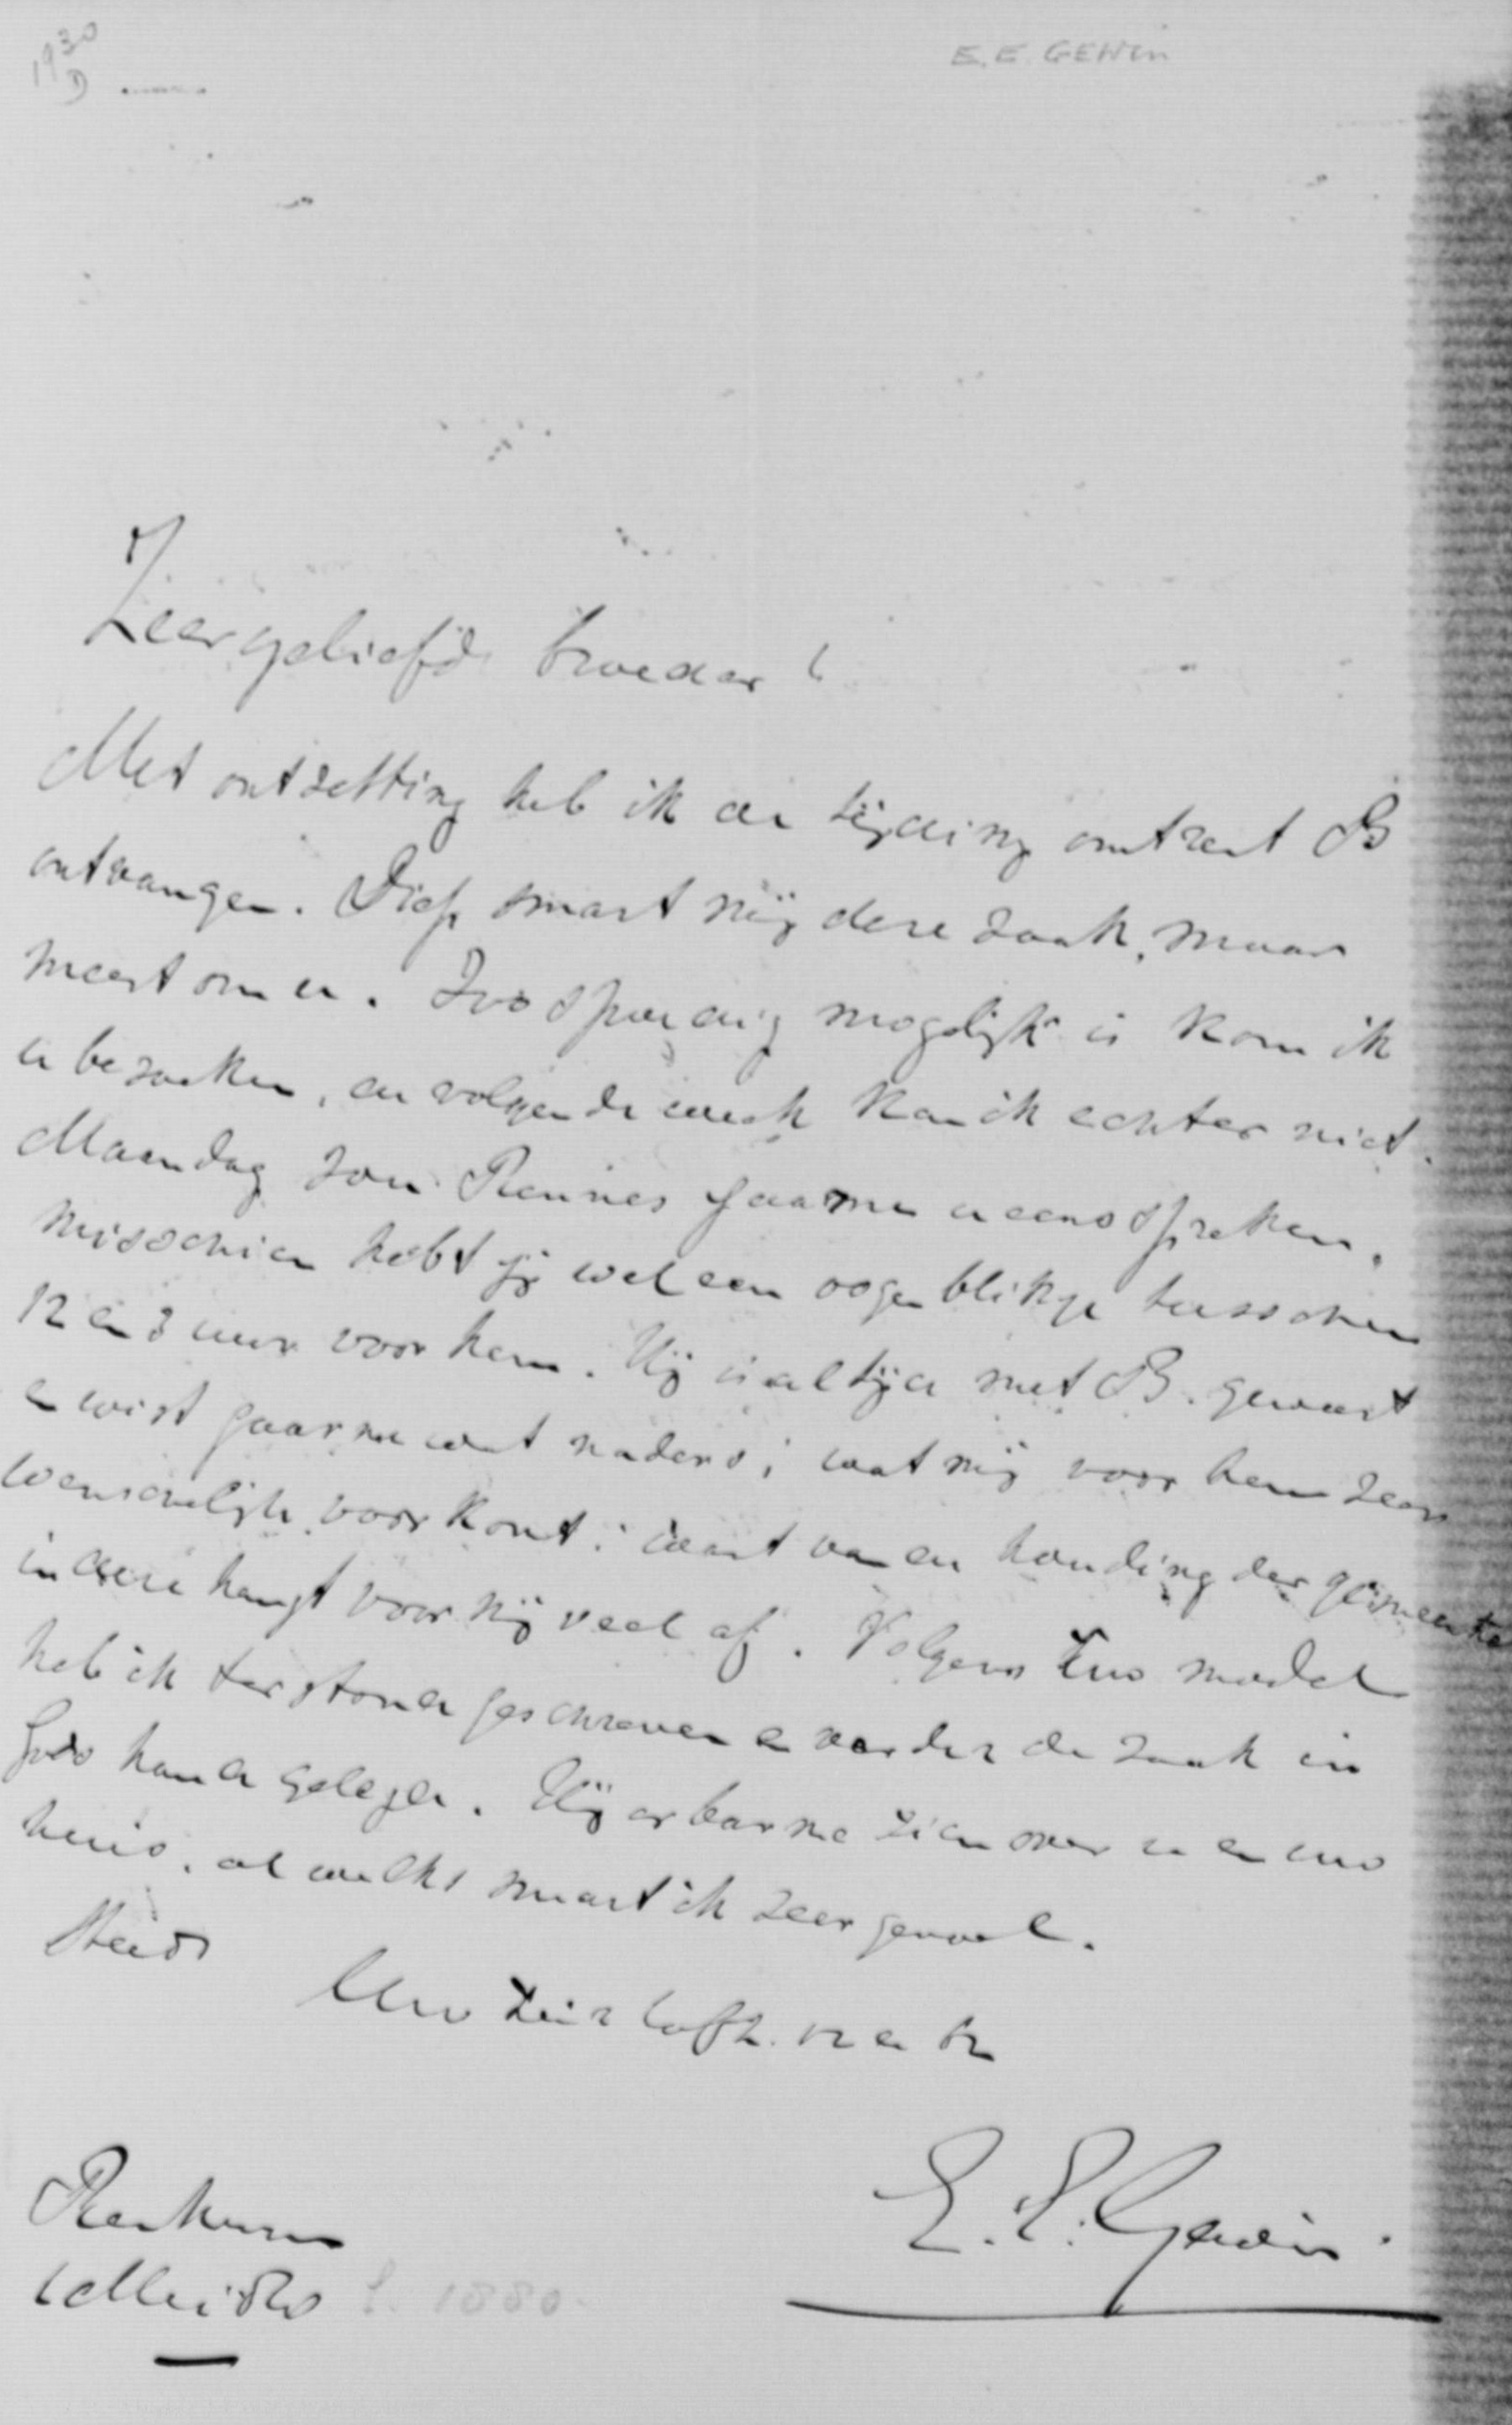 1930
D
E. E. GEWIN
Zeer geliefde broeder!
Met ontzetting heb ik de tijding omtrent B
ontvangen. Diep smart mij deze zaak, maar
meest om u. Zoo spoedig mogelijk is kom ik
u bezoeken, de volgende week kan ik echter niet.
Maandag zou Reunies gaarne u eens spreken.
Misschien hebt gij wel een oogenblikje tusschen
12 en 3 uur voor hem. Hij is altijd met B. geweest
en wist gaarne wat naders; wat mij voor hem zeer
wenschelijk voorkomt: want van de houding der gemeente
in deze hangt voor mij veel af. Volgens Uw model
heb ik terstond geschreven en verder de zaak in
Gods hand gelegen. Hij erbarme zich over u en uw
huis, al welks smart ik zeer gevoel.
Steeds
Uw zeer liefh. vr en br
E. E. Gewin.
Renkum
1880